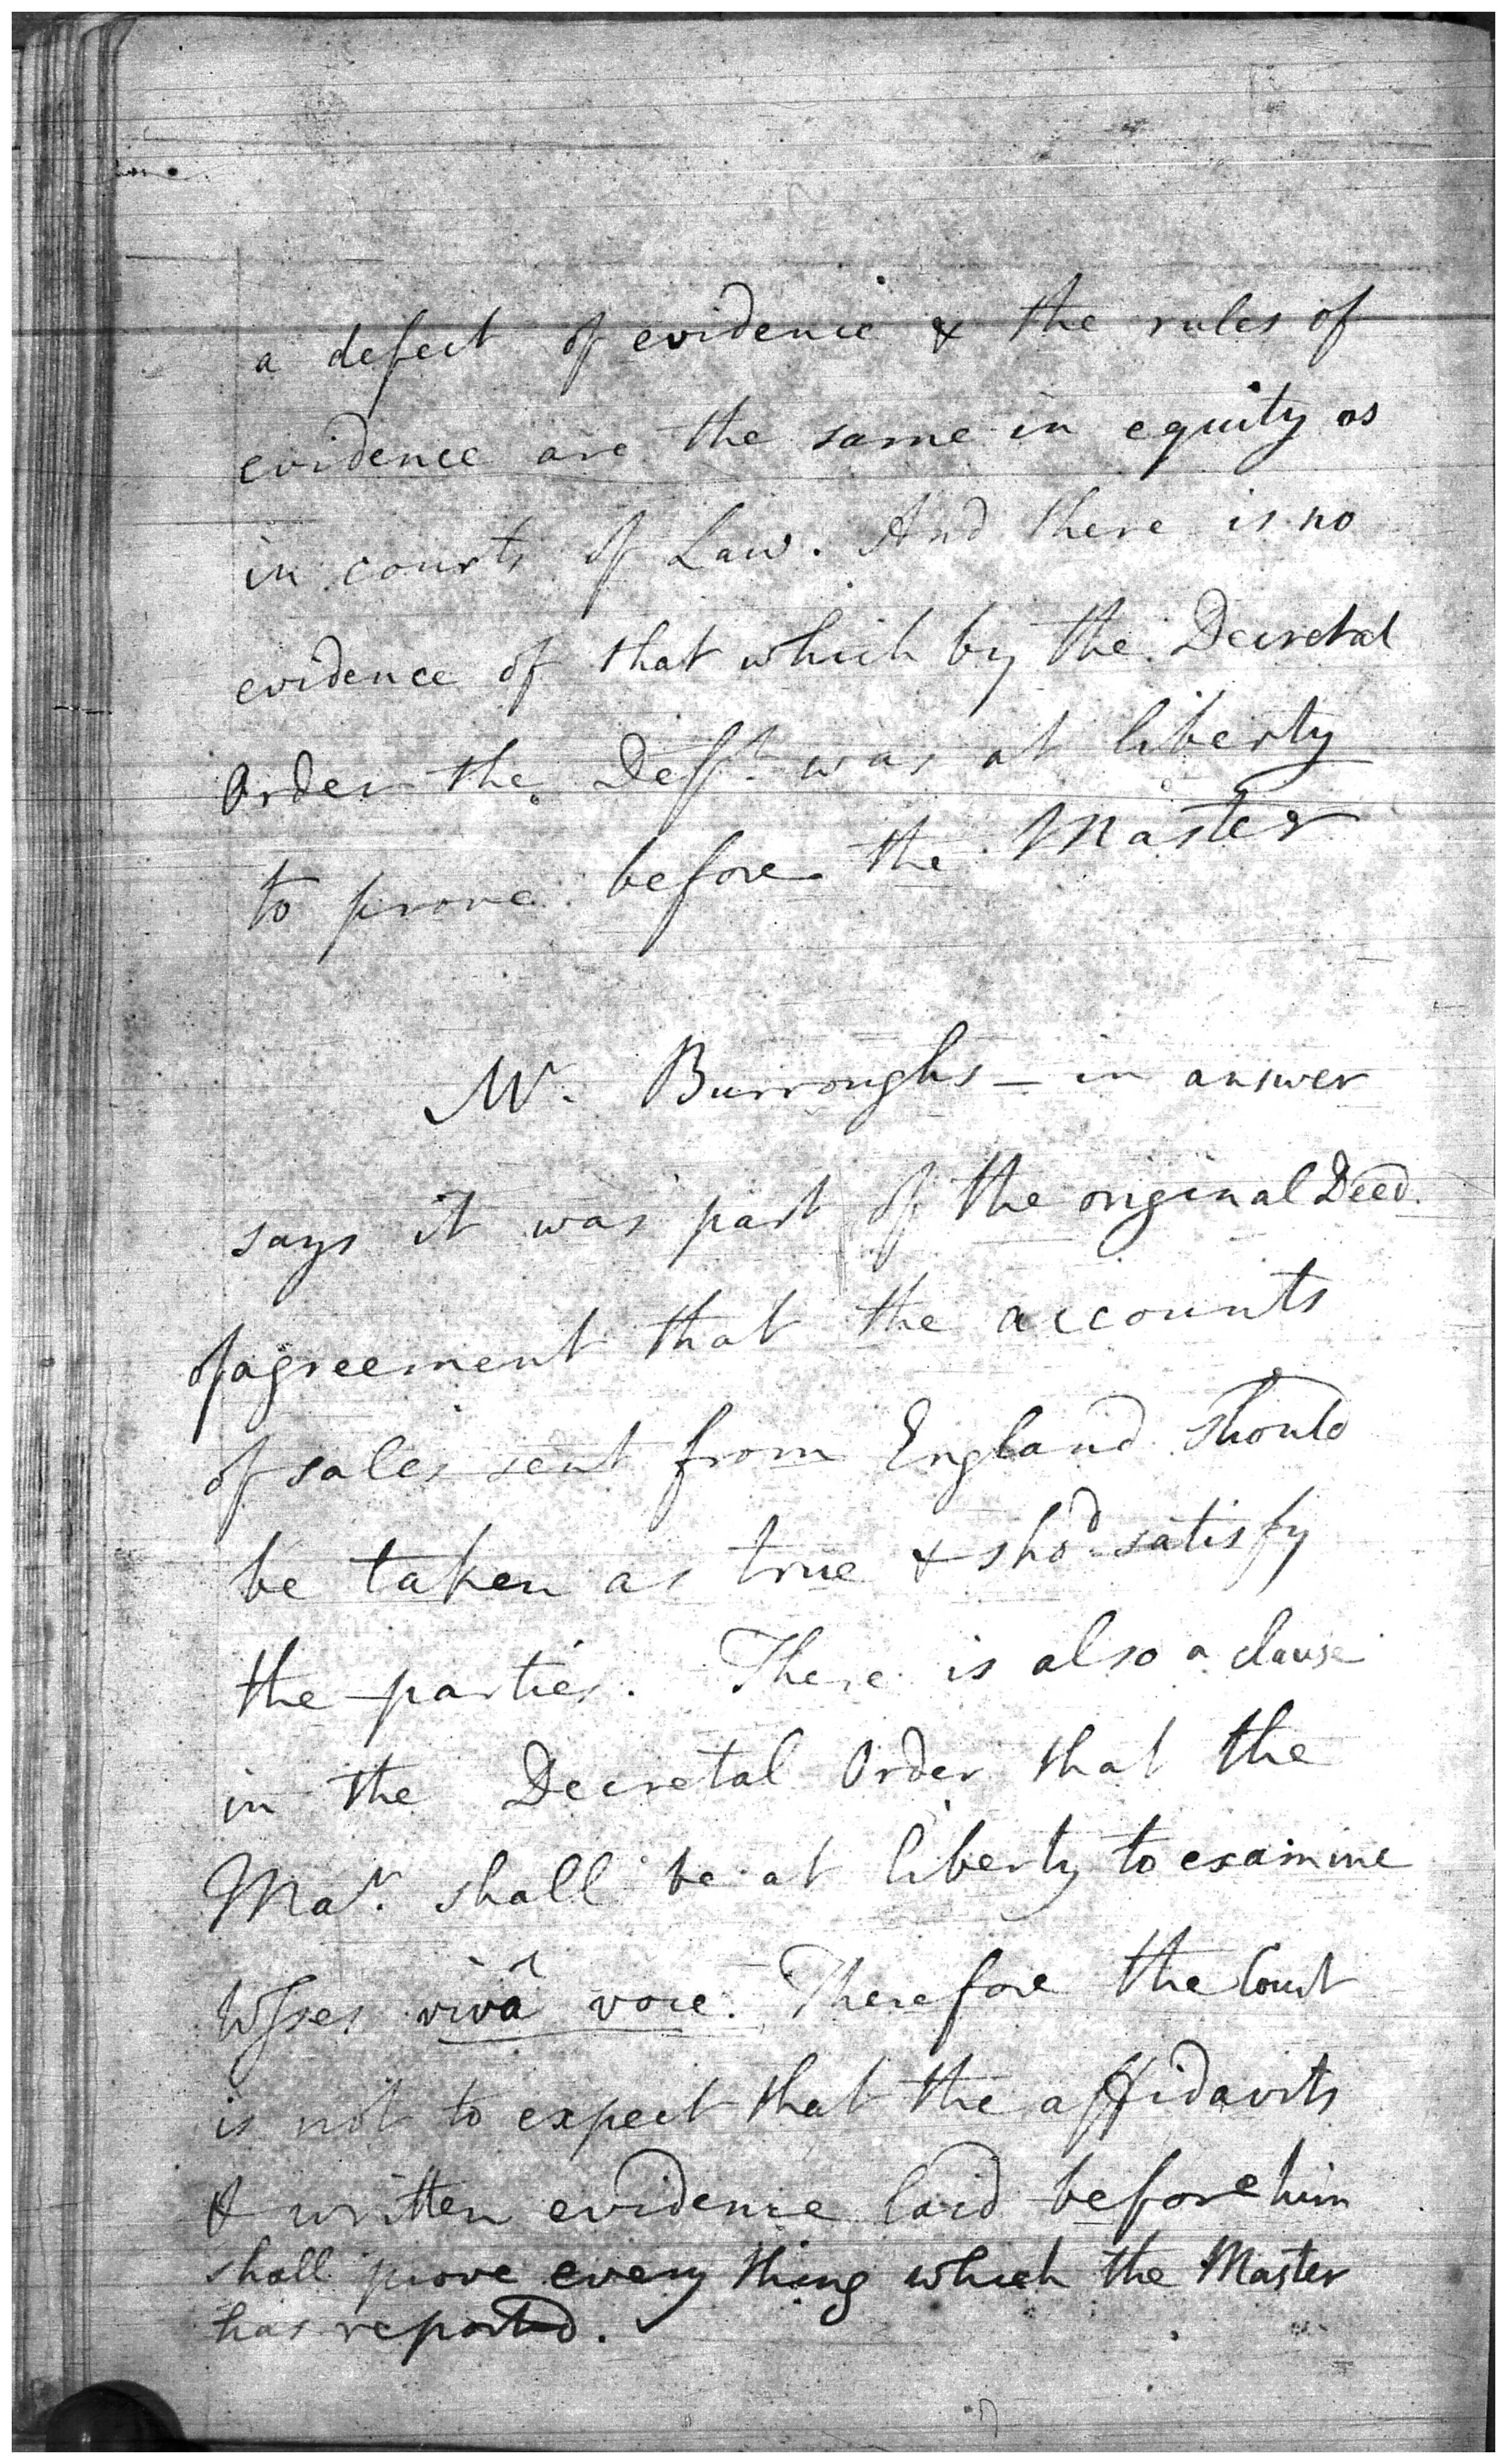 a defect of evidence & the rules of
evidence are the same in equity as
in courts of Law. And there is no
evidence of that which by the Decretal
Order the Defft. was at liberty
to prove before the Master
Mr. Burroughs - in answer
says it was part of the original Deed
of agreement that the accounts
of sales sent from England should
be taken as true & shod. satisfy
the parties. There is also a clause
in the Decretal Order that the
Mar. shall be at liberty to examine
Wsses vivâ voce. Therefore the Court
is not to expect that the affidavits
& written evidence laid before him
shall prove every thing which the Master
has reported.